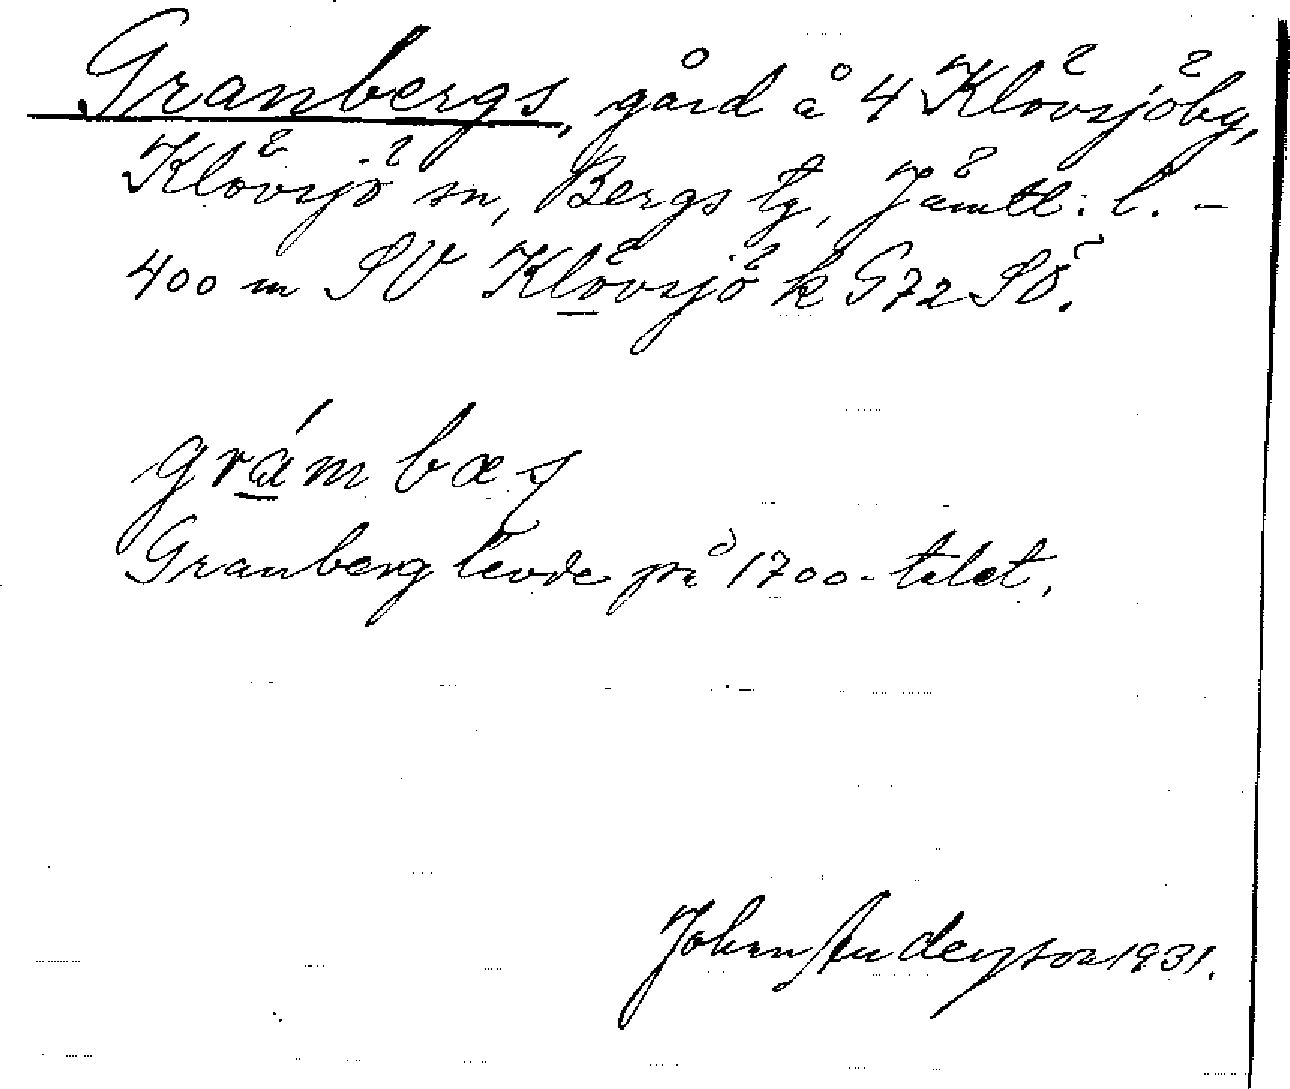 Granbergs, gård å 4 Klövsjöby,
Klövsjö sn, Bergs tg, Jämtl: l. -
400 m SV Klövsjö k G72 SÖ.
grámbæs
Granberg levde på 1700-talet.
Johan Anderson 1931.